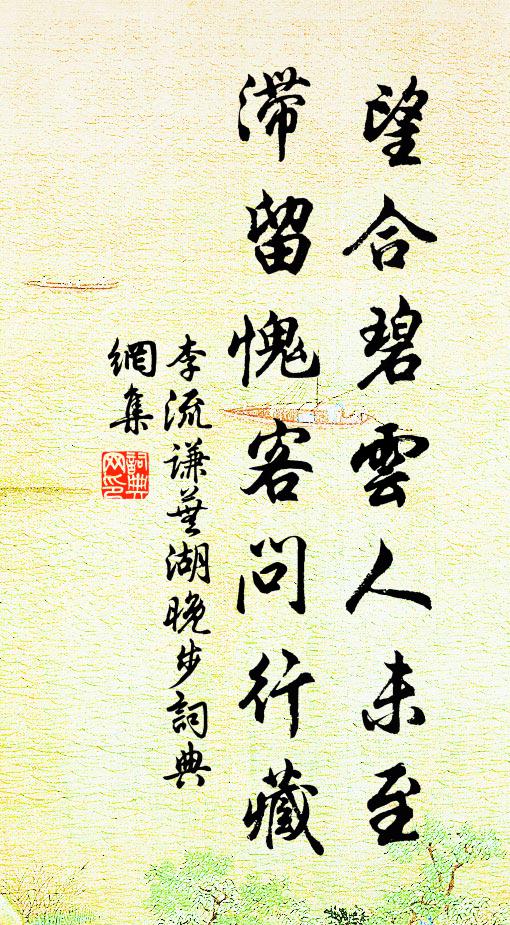 望合碧雲人未至
滯留愧客問行藏
李流謙蕪湖晚步詞典
網集
詞典
网印